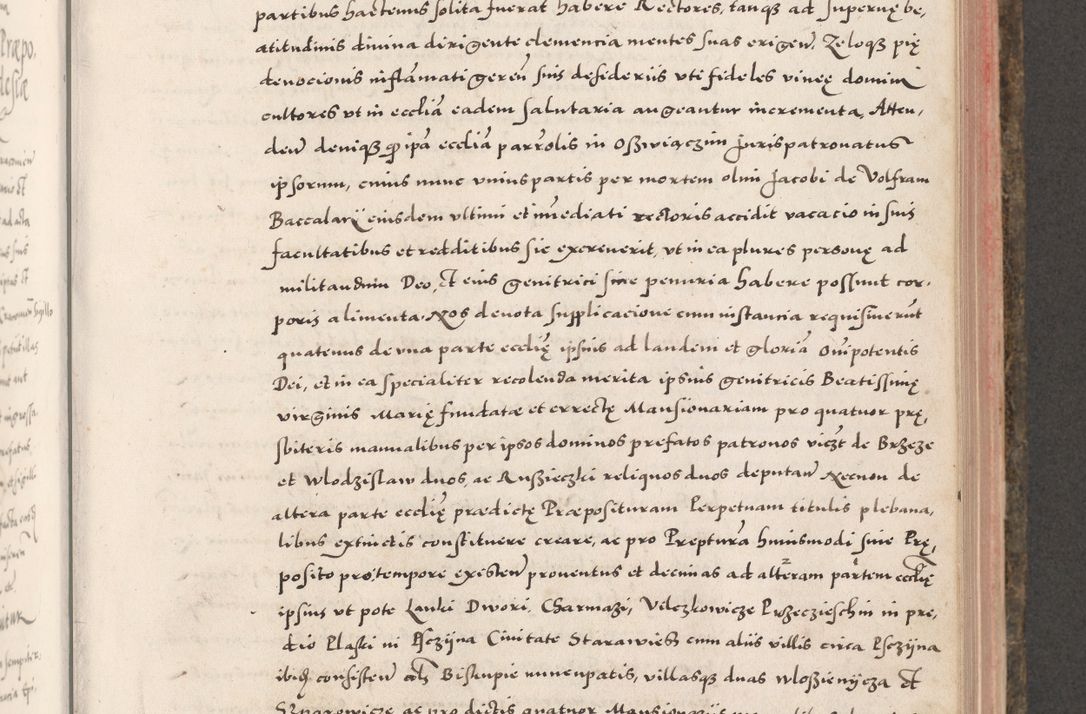 partibus hactenus solita fuerat habere Rectores, tanqȝ ad supernę be,
atitudinis divina dirigente clemencia mentes suas erigeñ. Zeloqȝ pię
devocionis inflãmati gereñ suis desideriis uti fideles vineę domini
cultores ut in ecclia eadem salutaria augeantur incrementa, Atten,
deñ deniqȝ qp ipã eccliã parrolis in Oszwiączim Jurispatronatus
ipsorum, cuius nunc unius partis per mortem olim Jacobi de Volfram
Baccalarij eiusdem ultimi et immediati rectoris accidit vacacio in suis
facultatibus et redditibus sic excreverit, ut in ea plures personę ad
militandum Deo, et eius genitrici sine penuria habere possunt cor,
poris alimenta. Nos devota supplicacione cum instancia requisiverũt
quatenus de una parte ecclię ipsius ad laudem et gloriã Oĩpotentis
Dei, et in ea specialiter recolenda merita ipsius genitricis Beatissimę
virginis Marię fundatæ et errectę Mansionariam pro quatuor prę,
sbiteris manualibus per ipsos dominos prefatos patronos viczt de Brzeze
et Wlodzislaw duos, ac Ruszieczki reliquos duos deputañ Necnon de
altera parte ecclię prædictę Præposituram Perpetuam titulis plebana,
libus extinctis constituere creare, ac pro Preptura huiusmodi sive Prę,
posito protempore existeñ proventus et decimas ad alteram partem ecclię
ipsius ut pote Lanki Dwori, Charmazi, Vilczkowicze Przeczieschin in pre,
dio Plaski ni Psczijna Civitate Starawies cum aliis villis circa Psczijna
ibidẽ consisteñ als Biskupie nuncupatis, villasqȝ duas Wloszienijcza et
ac pro dictis quatuor